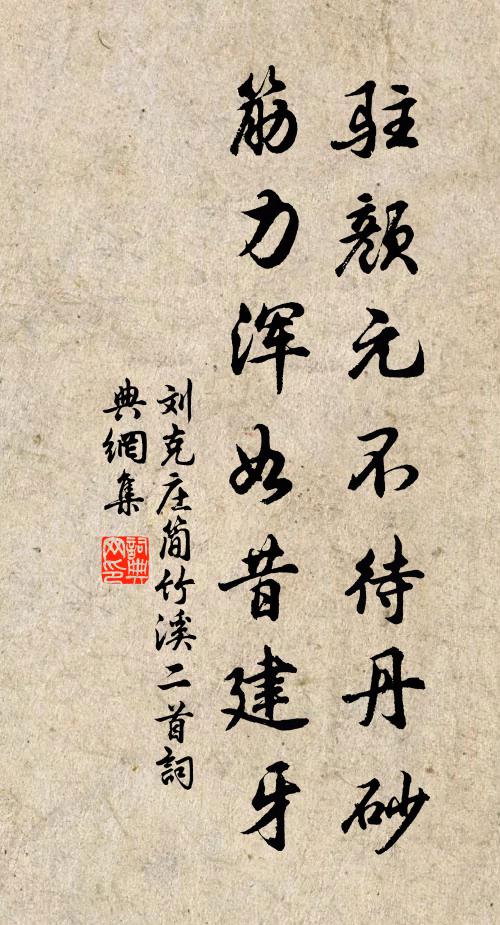 驻颜元不待丹砂
筋力浑如昔建牙
刘克庄简竹溪二首詞
典網集
詞典
网印